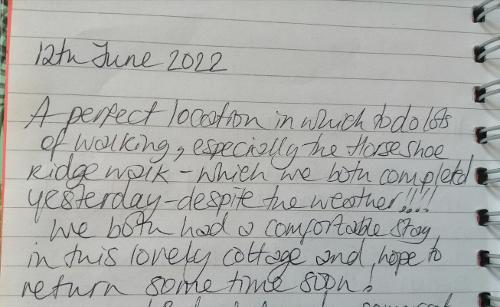 12th June 2022
A perfect location in which to do lots
of walking, especially the Horseshoe
Ridge walk - which we both completed
yesterday - despite the weather!!!!
We both had a comfortable stay
in this lovely cottage and hope to
return some time soon.